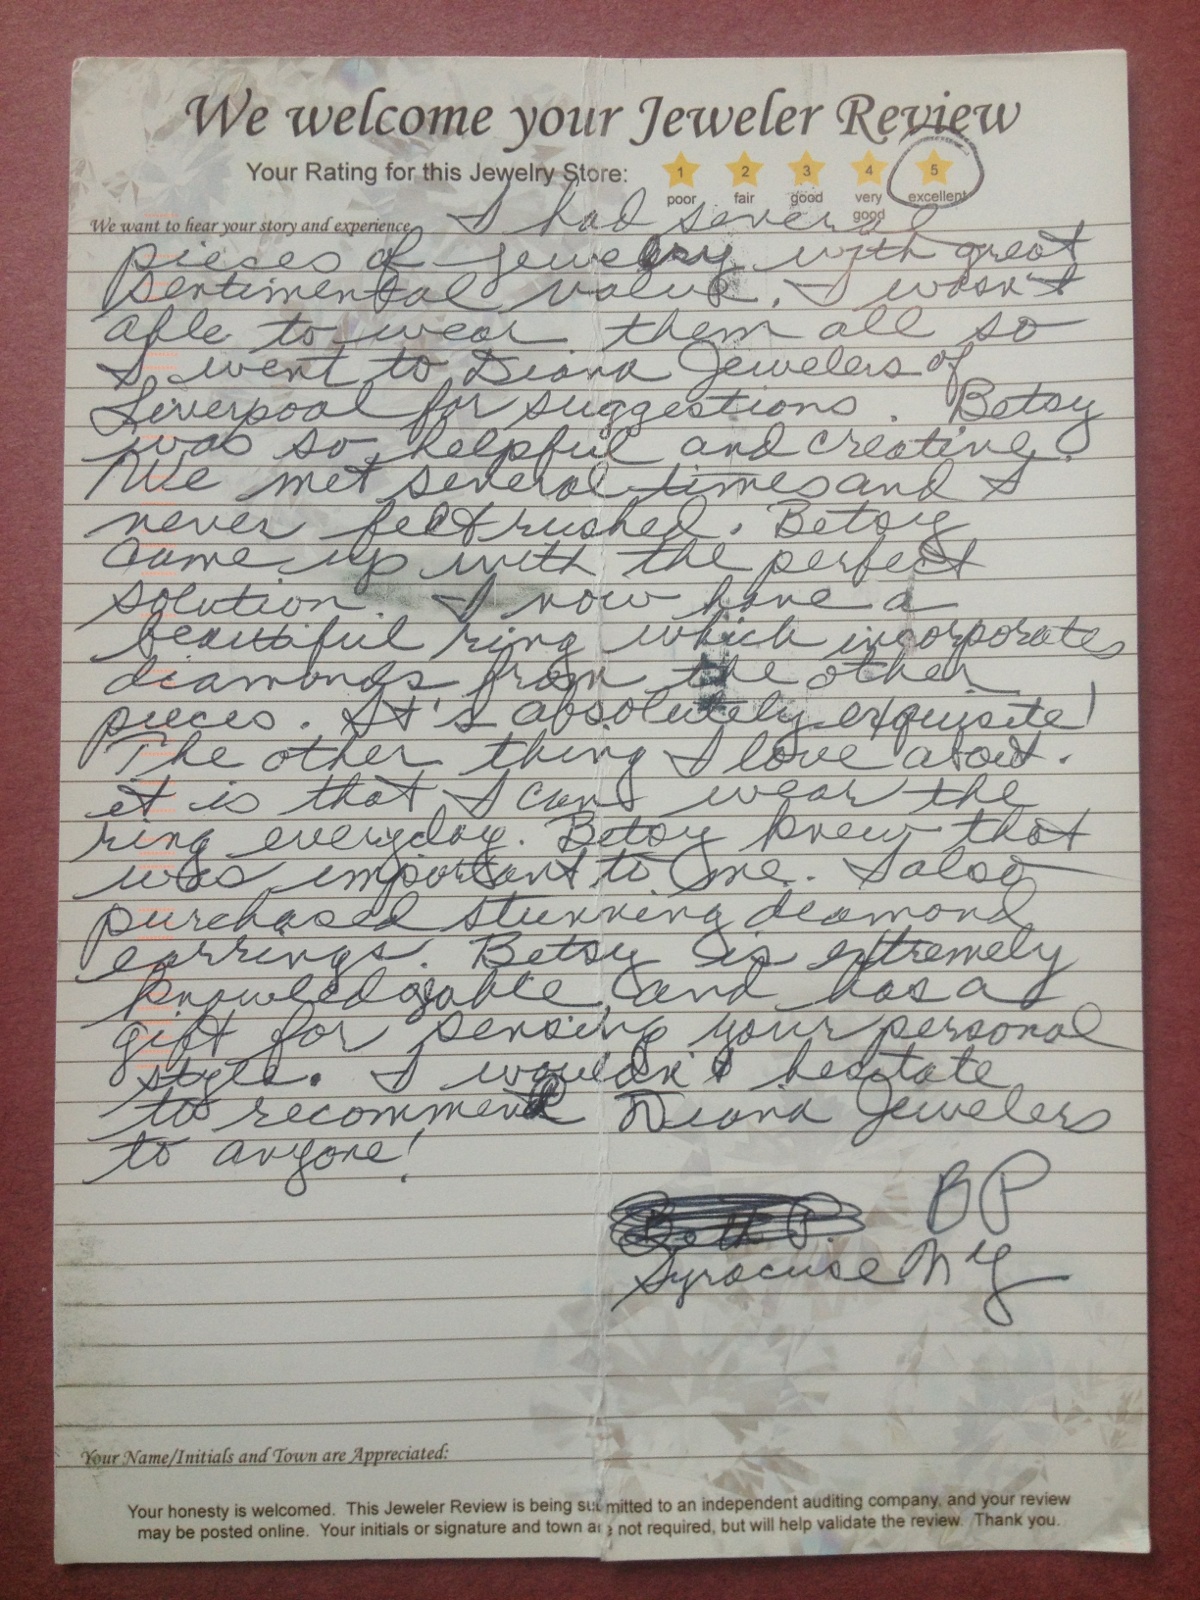 We welcome your Jeweler Review
Your Rating for this Jewelry Store: 1 2 3 4 5
poor fair good very good excellent
We want to hear your story and experience I had several
pieces of jewelry with great
sentimental value. I wasn't
able to wear them all so
I went to Diana Jewelers of
Liverpool for suggestions. Betsy
was so helpful and creative.
We met several times and I
never felt rushed. Betsy
came up with the perfect
solution. I now have a
beautiful ring which incorporates
diamonds from the other
pieces. It's absolutely exquisite!
The other thing I love about
it is that I can wear the
ring everyday. Betsy knew that
was important to me. I also
purchased stunning diamond
earrings. Betsy is extremely
knowledgable and has a
gift for sensing your personal
style. I wouldn't hesitate
to recommend Diana Jewelers
to anyone!
BP
Syracuse NY
Your Name/Initials and Town are Appreciated:
Your honesty is welcomed. This Jeweler Review is being submitted to an independent auditing company, and your review
may be posted online. Your initials or signature and town are not required, but will help validate the review. Thank you.